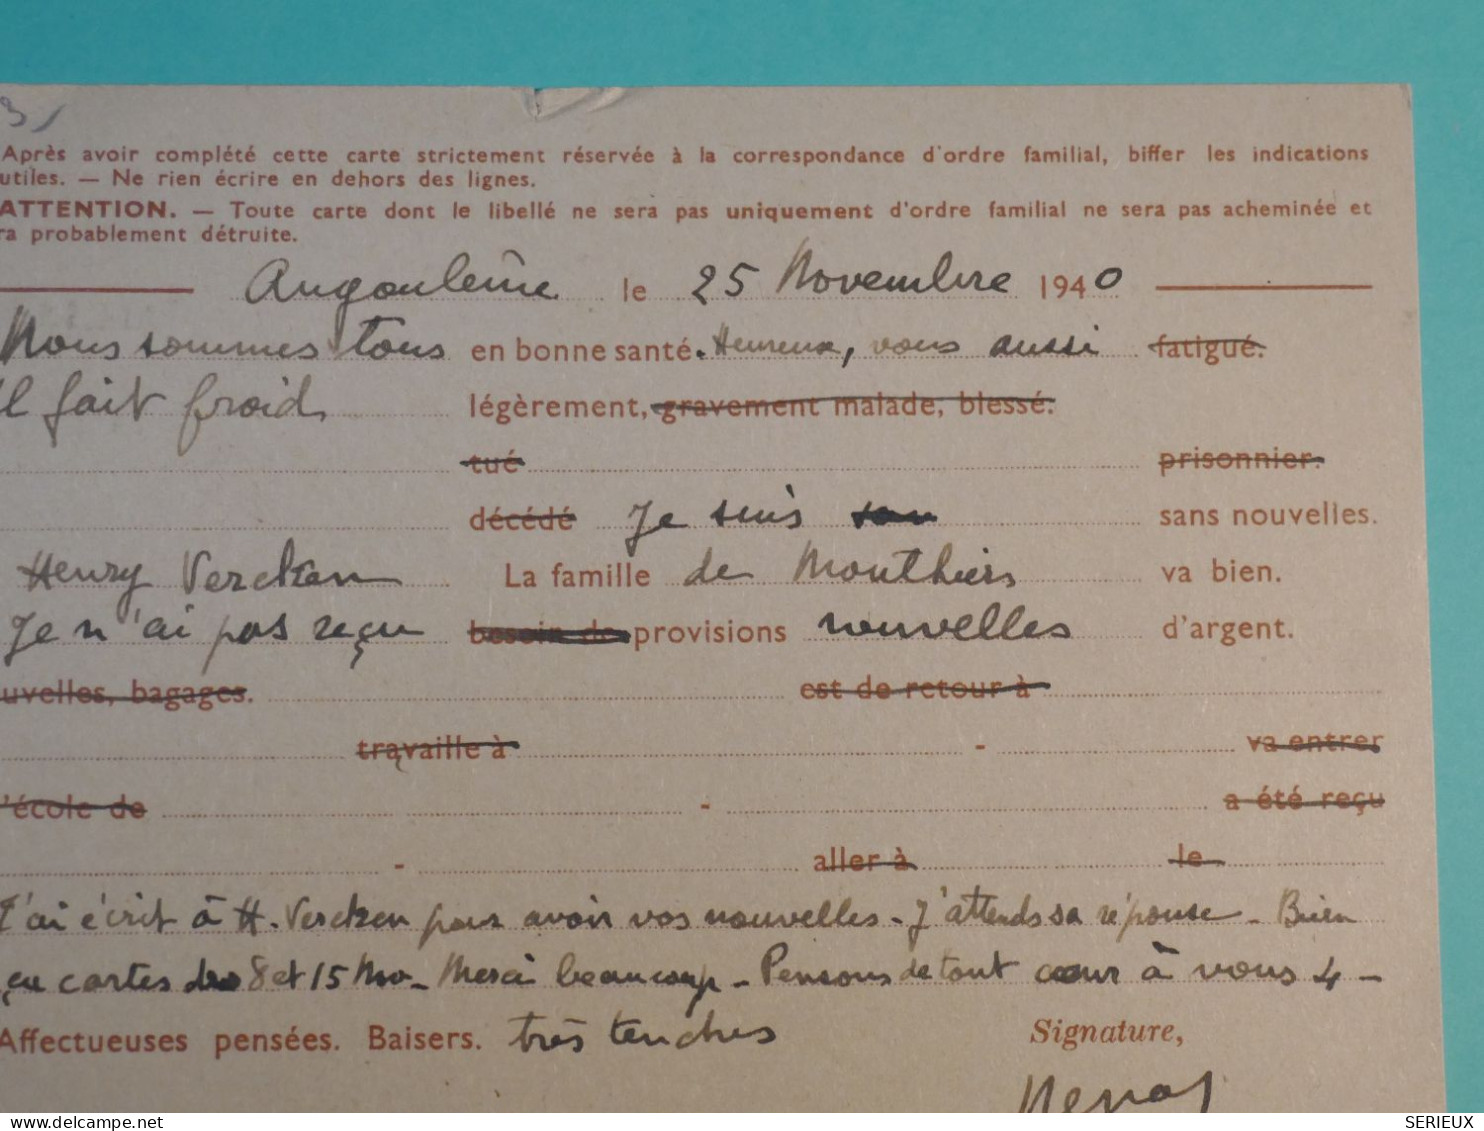 Après avoir complété cette carte strictement réservée à la correspondance d'ordre familial, biffer les indications
utiles. — Ne rien écrire en dehors des lignes.
ATTENTION. — Toute carte dont le libellé ne sera pas uniquement d'ordre familial ne sera pas acheminée et
ra probablement détruite.
Angoulême le 25 Novembre 1940
Nous sommes tous en bonne santé. Heureux, vous aussi fatigué.
Il fait froid, légèrement, gravement malade, blessé.
tué prisonnier.
décédé Je suis sans nouvelles.
Henry Vercken La famille de Monthiers va bien.
Je n'ai pas reçu besoin de provisions nouvelles d'argent.
uvelles, bagages. est de retour à
travaille à - va entrer
l'école de - a été reçu
- aller à le
J'ai écrit à H. Vercken pour avoir vos nouvelles - J'attends sa réponse - Bien
çu cartes des 8 et 15 Nov - Merci beaucoup - Pensons de tout cœur à vous 4 -
Affectueuses pensées. Baisers. très tendres
Signature,
delcampe.net
SERIEUX